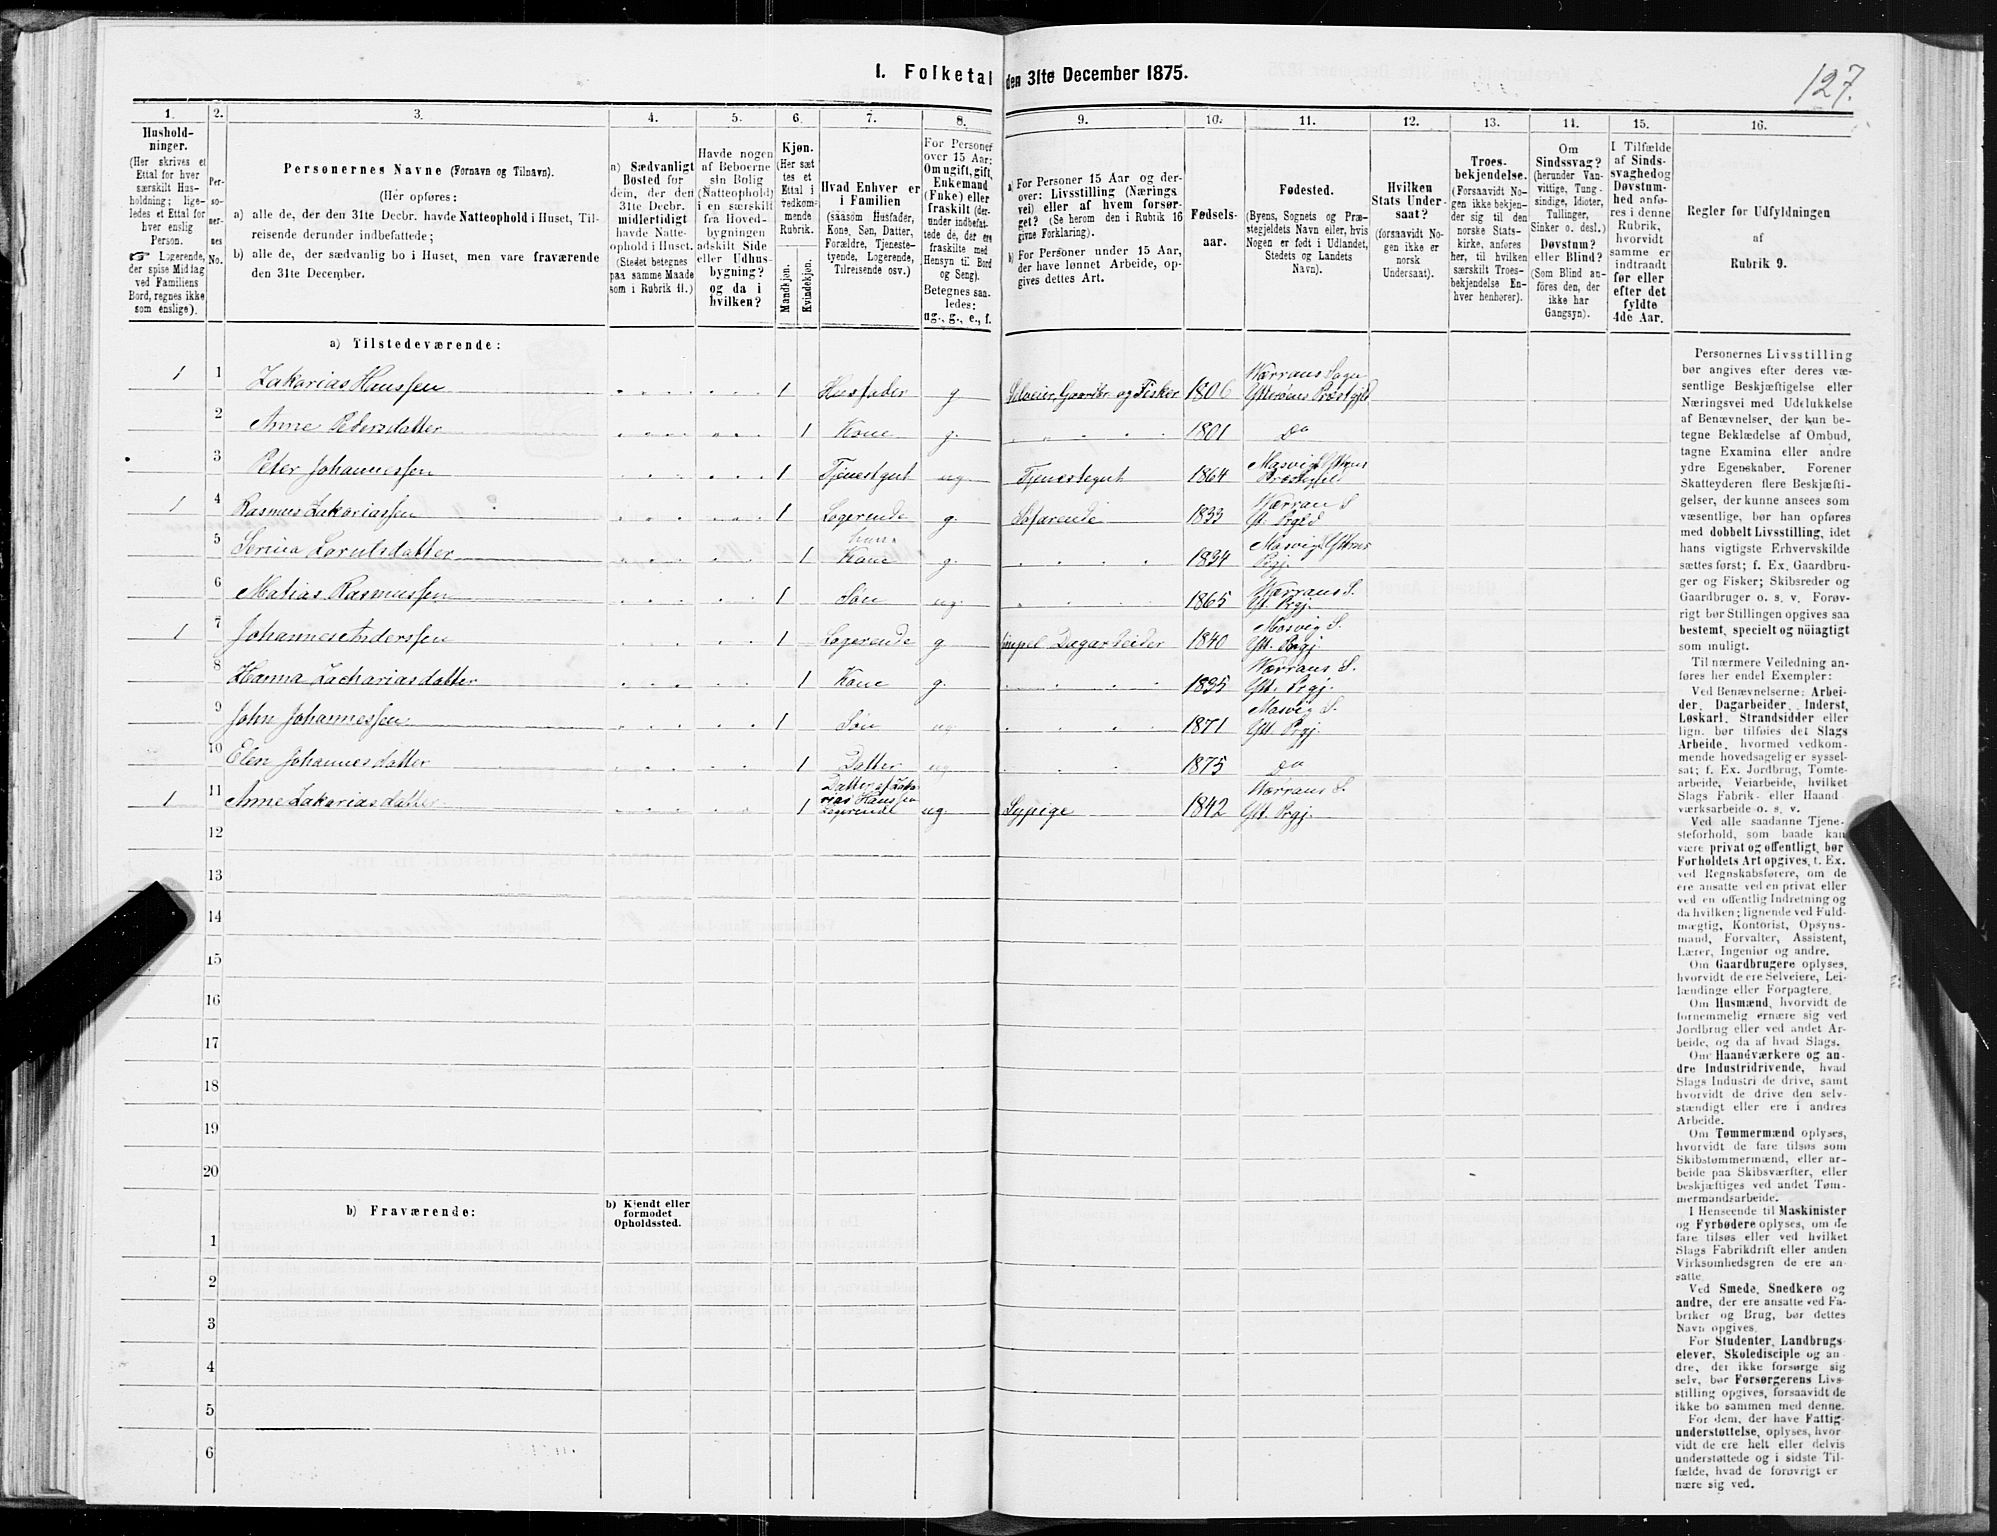 I. Folketal den 31te December 1875.
127.
1.
Husholdninger.
(Her skrives et
Ettal for hver
særskilt Husholdning; ligeledes et Ettal for
hver enslig
Person.
☞ Logerende,
der spise Middag
ved Familiens
Bord, regnes ikke
som enslige).
2.
Personernes
No.
3.
Personernes Navne (Fornavn og Tilnavn).
(Her opføres:
a) alle de, der den 31te Decbr. havde Natteophold i Huset, Tilreisende derunder indbefattede;
b) alle de, der sædvanlig bo i Huset, men vare fraværende
den 31te December.
4.
a) Sædvanligt
Bosted for
dem, der den
31te Decbr.
midlertidigt
havde Natteophold i Huset.
(Stedet betegnes
paa samme Maade
som i Rubrik 11.)
5.
Havde nogen
af Beboerne
sin Bolig
(Natteophold)
i en særskilt
fra Hovedbygningen
adskilt Side
eller Udhusbygning?
og da i
hvilken?
6.
Kjøn.
(Her sættes et
Ettal i
vedkommende
Rubrik.
Mandkjøn.
Kvindekjøn.
7.
Hvad Enhver er
i Familien
(saasom Husfader,
Kone, Søn, Datter,
Forældre, Tjenestetyende, Logerende,
Tilreisende osv.)
8.
For Personer
over 15 Aar:
Om ugift, gift,
Enkemand
(Enke) eller
fraskilt (derunder indbefattede de, der ere
fraskilte med
Hensyn til Bord
og Seng).
Betegnes saaledes:
ug., g., e., f.
9.
a) For Personer 15 Aar og derover: Livsstilling (Næringsvei) eller af hvem forsørget? (Se herom den i Rubrik 16
givne Forklaring).
b) For Personer under 15 Aar,
der have lønnet Arbeide, opgives dettes Art.
10.
Fødselsaar.
11.
Fødested.
(Byens, Sognets og Præstegjeldets Navn eller, hvis
Nogen er født i Udlandet,
Stedets og Landets
Navn).
12.
Hvilken
Stats Undersaat?
(forsaavidt Nogen ikke er
norsk
Undersaat).
13.
Troesbekjendelse.
(Forsaavidt Nogen ikke bekjender sig til den
norske Statskirke, anføres
her, til hvilken
særskilt Troesbekjendelse Enhver henhører).
14.
Om
Sindssvag?
(herunder Vanvittige, Tungsindige, Idioter,
Tullinger,
Sinker o. desl.)
Døvstum?
eller Blind?
(Som Blind anføres den, der
ikke har
Gangsyn).
15.
I Tilfælde
af Sindssvaghed og
Døvstumhed anføres i denne
Rubrik,
hvorvidt
samme er
indtraadt
før eller
efter det
fyldte
4de Aar.
16.
Regler for Udfyldningen
af
Rubrik 9.
a) Tilstedeværende:
1 1 Zakarias Hanssen 1 Husfader g Selveier, Gaardbr. og Fisker 1806 Værrans Sogn Ytterøens Præstgjeld
2 Anne Pedersdatter 1 Kone g. 1801 Do
3 Peter Johannessen 1 Tjenestgut ug. Tjenestegut 1864 Mosvig Præstegjeld
1 4 Rasmus Zakariassen 1 Logerende g. Søfarende 1833 Værran S Prgjd
5 Serina Lorntsdatter 1 hans Kone g. 1834 Mosvig Prgj.
6 Matias Rasmussen 1 Søn ug. 1865 Værrans S. Yt. Prgj.
1 7 Johannes Anderssen 1 Logerende g simpel Dagarbeider 1840 Mosvig S. Ytt. Prgj.
8 Hanna Zachariasdatter 1 Kone g. 1835 Værrans S. Ytt. Prgj.
9 John Johannessen 1 Søn ug 1871 Mosvig S. Ytt. Prgj.
10 Elen Johannesdatter 1 Datter ug 1875 Do
1 11 Anne Zakariasdatter 1 Datter af Zakarias Hanssen Logerende ug Sypige 1842 Værrans S. Ytt. Prgj.
12
13
14
15
16
17
18
19
20
b) Fraværende:
b) Kjendt eller
formodet
Opholdssted.
1
2
3
4
5
6
Personernes Livsstilling
bør angives efter deres væsentlige Beskjæftigelse eller
Næringsvei med Udelukkelse
af Benævnelser, der kun betegne Beklædelse af Ombud,
tagne Examina eller andre
ydre Egenskaber. Forener
Skatteyderen flere Beskjæftigelser, der kunne ansees som
væsentlige, bør han opføres
med dobbelt Livsstilling, idet
hans vigtigste Erhvervskilde
sættes først; f. Ex. Gaardbruger og Fisker; Skibsreder og
Gaardbruger o. s. v. Forøvrigt bør Stillingen opgives saa
bestemt, specielt og nøiagtigt
som muligt.
Til nærmere Veiledning anføres her endel Exempler:
Ved Benævnelserne: Arbeider, Dagarbeider, Inderst,
Løskarl, Strandsidder eller
lign. bør tilføies det Slags
Arbeide, hvormed vedkommende hovedsagelig er sysselsat; f. Ex. Jordbrug, Tomtearbeide, Veiarbeide, hvilket
Slags Fabrik- eller Haandværksarbeide o. s. v.
Ved alle saadanne Tjenesteforhold, som baade kan
være privat og offentligt, bør
Forholdets Art opgives, t. Ex.
ved Regnskabsførere, om de
ere ansatte ved en privat eller
ved en offentlig Indretning og
da hvilken; lignende ved Fuldmægtig, Kontorist, Opsynsmand, Forvalter, Assistent,
Lærer, Ingeniør og andre.
Om Gaardbrugere oplyses,
hvorvidt de ere Selveiere, Leilændinge eller Forpagtere.
Om Husmænd, hvorvidt de
fornemmelig ernære sig ved
Jordbrug eller ved andet Arbeide, og da af hvad Slags.
Om Haandværkere og andre Industridrivende, hvad
Slags Industri de drive, samt
hvorvidt de drive den selvstændigt eller ere i andres
Arbeide.
Om Tømmermænd oplyses,
hvorvidt de fare tilsøs som
Skibstømmermænd, eller arbeide paa Skibsværfter, eller
beskjæftiges ved andet Tømmermandsarbeide.
I Henseende til Maskinister
og Fyrbødere oplyses, om de
fare tilsøs eller ved hvilket
Slags Fabrikdrift eller anden
Virksomhedsgren de ere ansatte.
Ved Smede, Snedkere og
andre, der ere ansatte ved Fabriker og Brug, bør dettes
Navn opgives.
For Studenter, Landbrugselever, Skoledisciple og andre, der ikke forsørge sig
selv, bør Forsørgerens Livsstilling opgives, forsaavidt de
ikke bo sammen med denne.
For dem, der have Fattigunderstøttelse, oplyses, hvorvidt de ere helt eller delvis
understøttede og i sidste Tilfælde, hvad de forøvrigt er
nære sig ved.